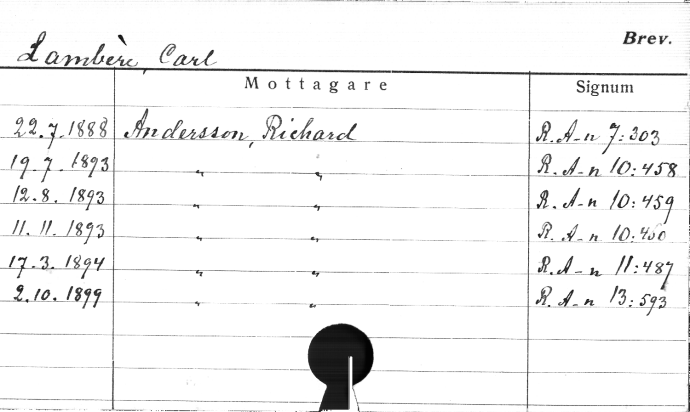 Brev.
Lambère, Carl
Mottagare Signum
22.7.1888 Andersson, Richard R. A-n 7:303
19.7.1893 " " R. A-n 10:458
12.8.1893 " " R. A-n 10:459
11.11.1893 " " R. A-n
17.3.1894 " " R. A-n 11:487
2.10.1899 " " R. A-n 13:593